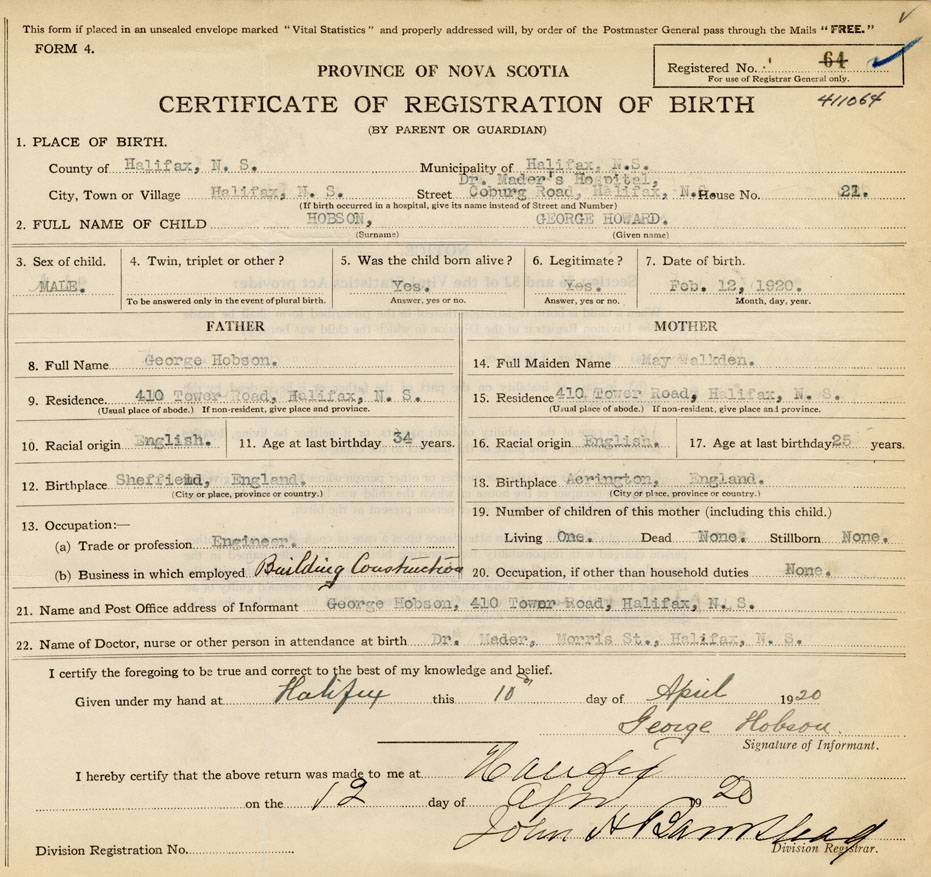 This form if placed in an unsealed envelope marked "Vital Statistics" and properly addressed will, by order of the Postmaster General pass through the Mails "FREE."
FORM 4.
Registered No. 64
For use of Registrar General only.
PROVINCE OF NOVA SCOTIA
CERTIFICATE OF REGISTRATION OF BIRTH
411064
(BY PARENT OR GUARDIAN)
1. PLACE OF BIRTH.
County of Halifax, N. S. Municipality of Halifax, N.S.
Dr. Mader's Hospital,
City, Town or Village Halifax, N. S. Street Coburg Road, Halifax, N.S. House No. 21.
(If birth occurred in a hospital, give its name instead of Street and Number)
2. FULL NAME OF CHILD HOBSON, GEORGE HOWARD.
(Surname) (Given name)
3. Sex of child. 4. Twin, triplet or other ? 5. Was the child born alive ? 6. Legitimate ? 7. Date of birth.
MALE. Yes. Yes. Feb. 12, 1920.
To be answered only in the event of plural birth. Answer, yes or no. Answer, yes or no. Month, day, year.
FATHER MOTHER
8. Full Name George Hobson. 14. Full Maiden Name May Walkden.
9. Residence. 410 Tower Road, Halifax, N. S. 15. Residence 410 Tower Road, Halifax, N. S.
(Usual place of abode.) If non-resident, give place and province. (Usual place of abode.) If non-resident, give place and province.
10. Racial origin English. 11. Age at last birthday 34 years. 16. Racial origin English. 17. Age at last birthday 25 years.
12. Birthplace Sheffield, England. 18. Birthplace Acrington, England.
(City or place, province or country.) (City or place, province or country.)
13. Occupation:— 19. Number of children of this mother (including this child.)
(a) Trade or profession Engineer. Living One. Dead None. Stillborn None.
(b) Business in which employed Building Construction 20. Occupation, if other than household duties None.
21. Name and Post Office address of Informant George Hobson, 410 Tower Road, Halifax, N. S.
22. Name of Doctor, nurse or other person in attendance at birth Dr. Mader, Morris St., Halifax, N. S.
I certify the foregoing to be true and correct to the best of my knowledge and belief.
Given under my hand at Halifax this 10 day of April 1920
George Hobson.
Signature of Informant.
I hereby certify that the above return was made to me at Halifax
on the 12 day of Apr 1920
John H
Division Registration No. Division Registrar.